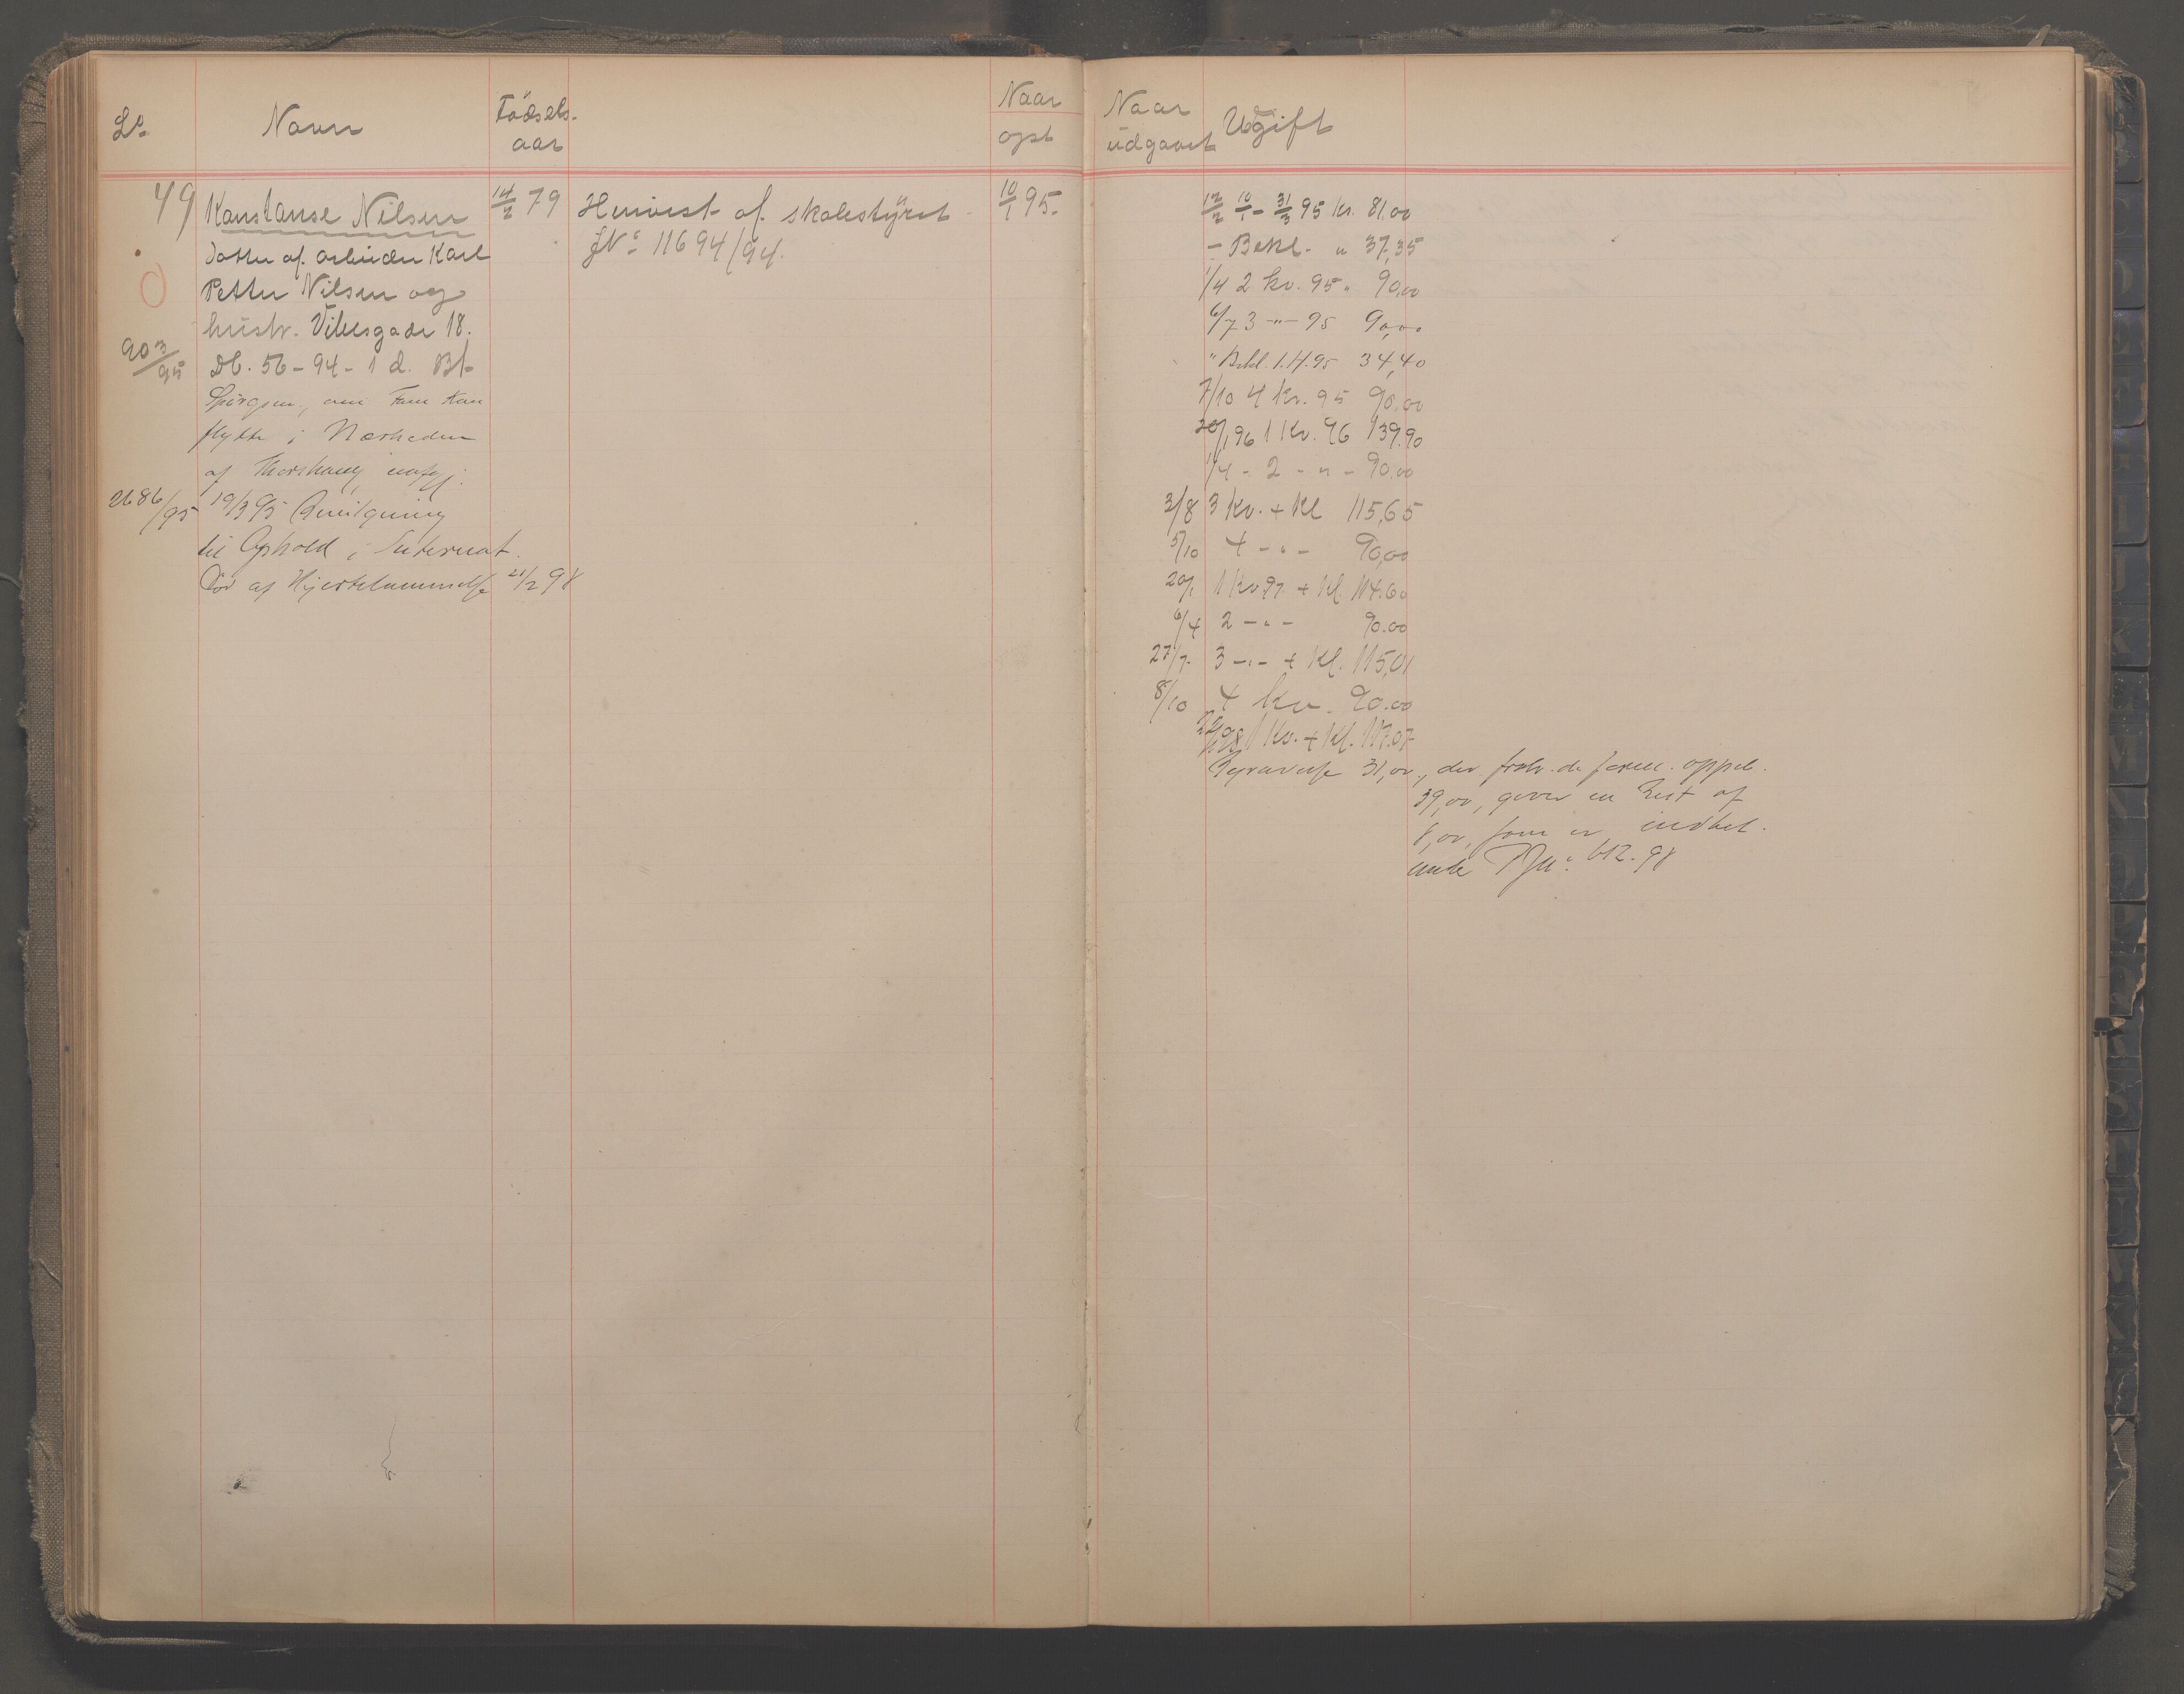 Lo. Navn Födsels-
aar
Naar
opt
49 Konstanse Nilsen 14/2 79 Henvist af skolestyret 10/1 95.
JNo 11694/94.
Datter af arbeider Karl
Petter Nilsen og
hustr. Vibesgade 18.
903/95 Db. 56-94-1 d. Bl.
Spörgsm., om Fam kan
flytte i Nærheden
af Thorshaug,
2686/95 19/3 95 Bevilgning
til Ophold i Internat.
Död af Hjertelammelse 21/2 98
Naar
udgaaet Udgift
12/2 10/1 - 31/3 95 kr. 81.00
- Bekl. " 37,35
1/4 2 kv. 95 " 90,00
6/7 3 -"- 95 90,00
" Bekl. 1.H.95 34,40
7/10 4 kv. 95 90,00
20/1 96 1 Kv. 96 139.90
1/4 - 2 - " - 90.00
3/8 3 Kv. + Kl 115,65
5/10 4 - " - 90,00
20/1 1 Kv 97. + Kl. 114.60
6/4 2 - " - 90.00
27/7. 3 - " - + Kl. 115,01
8/10 4 kv. 90.00
98 1 Kv. + Kl. 117.07
Begravelse 31,00, der fratr. de oppeb.
39,00, giver en Rest af
8,00, som er indbet.
under 612.98